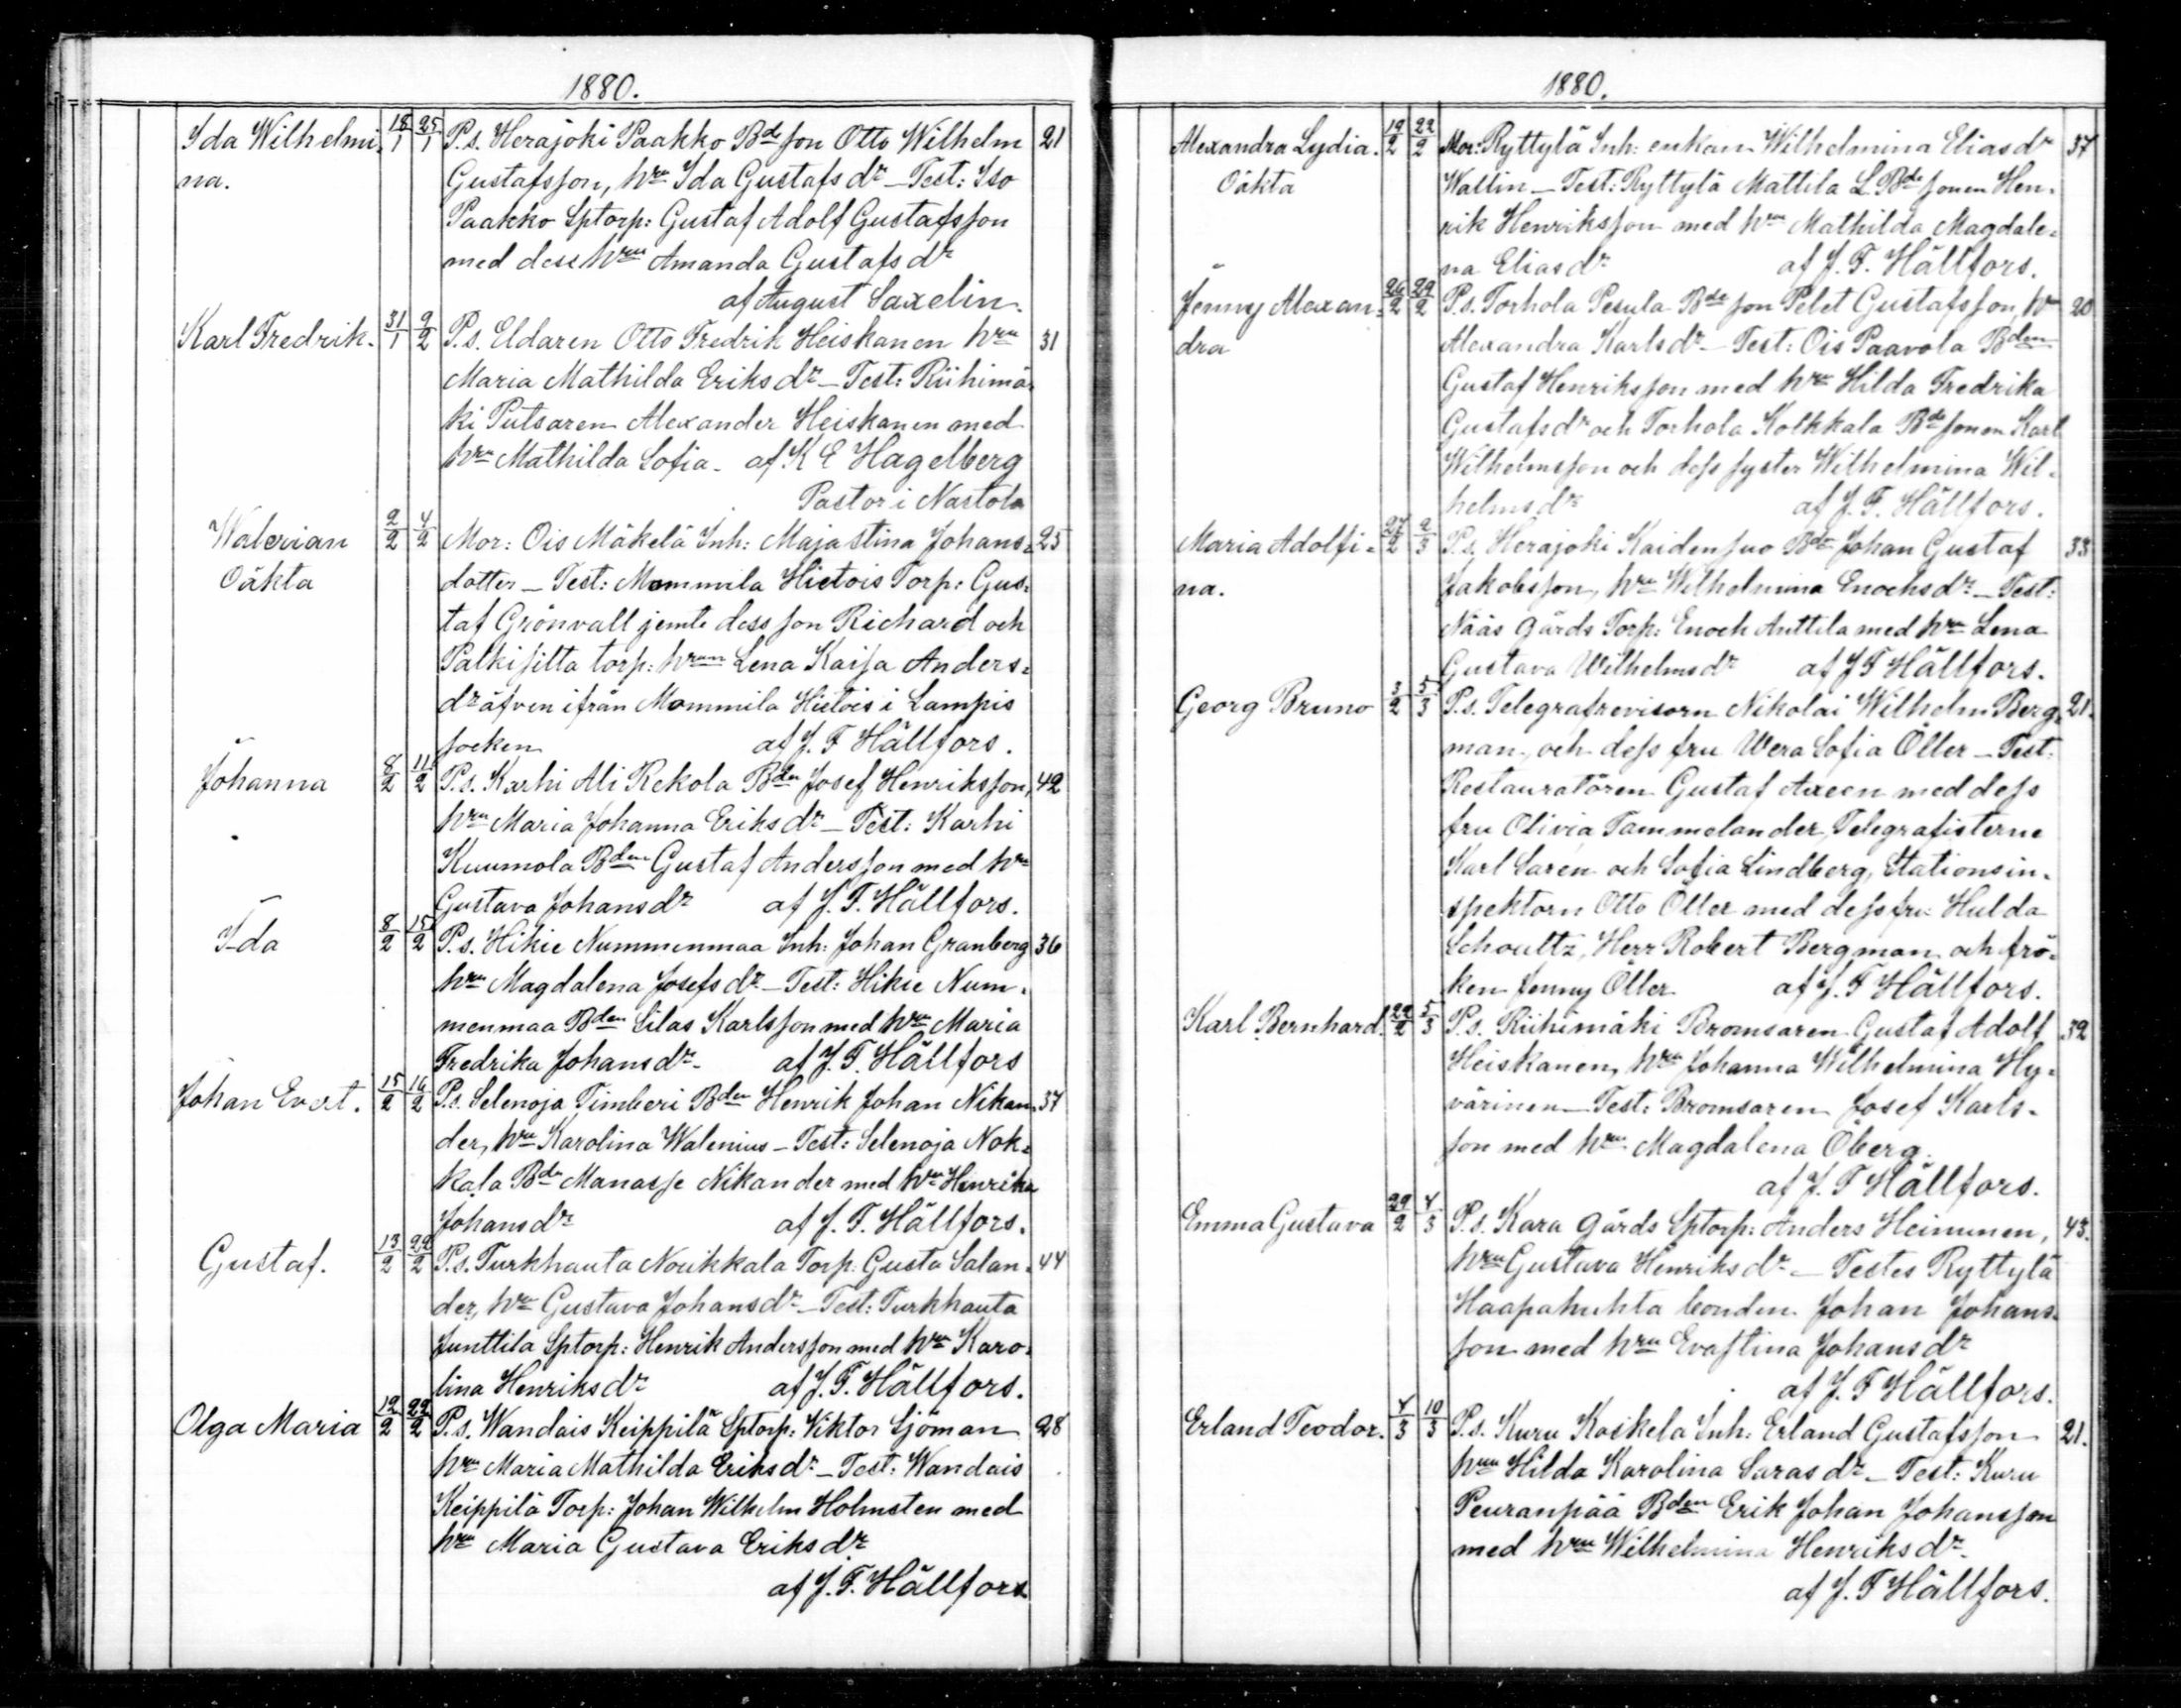 1880.
Ida Wilhelmi- 18/1 25/1 P.s. Herajoki Paakko Bde son Otto Wilhelm 21
na. Gustafsson, hru Ida Gustafs dr – Test: Iso
Paakko Sptorp: Gustaf Adolf Gustafsson
med dess hru Amanda Gustafs dr
af August Saxelin.
Karl Fredrik. 31/1 9/2 P.s. Eldaren Otto Fredrik Heiskanen hru 31
Maria Mathilda Eriks dr – Test: Riihimä-
ki Putsaren Alexander Heiskanen med
hru Mathilda Sofia – af K E Hagelberg
Pastor i Nastola
Walerian 2/2 4/2 Mor: Ois Mäkelä Inh: Maja Stina Johans= 25
Oäkta dotter – Test: Mommila Hietois Torp: Gus-
taf Grönvall jemte dess son Richard och
Palkisilta torp: hrun Lena Kaisa Anders=
dr äfven ifrån Mommila Hietois i Lampis
socken af J. F Hällfors.
Johanna 8/2 11/2 P.s. Karhi Ali Rekola Bden Josef Henriksson, 42
hru Maria Johanna Eriks dr – Test: Karhi
Kuumola Bden Gustaf Andersson med hru
Gustava Johans dr af J. F. Hällfors.
Ida 8/2 15/2 P.s. Hikie Nummenmaa Inh: Johan Granberg 36
hru Magdalena Josefs dr – Test: Hikie Num-
menmaa Bden Silas Karlsson med hru Maria
Fredrika Johans dr – af J. F. Hällfors
Johan Evert. 15/2 16/2 P.s. Selenoja Timberi Bden Henrik Johan Nikan- 37
der, hru Karolina Walenius – Test: Selenoja Nok=
kala Bdn Manasse Nikander med hru Henrika
Johans dr af J. F. Hällfors.
Gustaf. 13/2 22/2 P.s. Turkhauta Noukkala Torp: Gusta Salan- 44
der, hru Gustava Johans dr – Test: Turkhauta
Junttila Sptorp: Henrik Andersson med hru Karo-
lina Henriks dr af J. F. Hällfors.
Olga Maria 12/2 22/2 P.s. Wandais Keippilä Sptorp: Viktor Sjöman 28
hru Maria Mathilda Eriks dr – Test: Wandais
Keippilä Torp: Johan Wilhelm Holmsten med
hru Maria Gustava Eriks dr
af J. F. Hällfors
1880.
Alexandra Lydia. 19/2 22/2 Mor: Ryttylä Inh: enkan Wilhelmina Elias dr 37
Oäkta Wallin – Test: Ryttylä Mattila L. Bde sonen Hen-
rik Henriksson med hru Mathilda Magdale=
na Elias dr af J. F. Hällfors.
Jenny Alexan= 26/2 29/2 P.s. Torhola Pesula Bde son Pelet Gustafsson, hru 20
dra Alexandra Karls dr – Test: Ois Paavola Bden
Gustaf Henriksson med hru Hilda Fredrika
Gustafs dr och Torhola Kolkkala Bde sonen Karl
Wilhelmsson och dess syster Wilhelmina Wil-
helms dr af J. F. Hällfors.
Maria Adolfi= 27/2 2/3 P.s. Herajoki Kaidensuo Bde Johan Gustaf 33
na. Jakobsson, hru Wilhelmina Enochs dr – Test:
Nääs gårds Torp: Enoch Anttila med hru Lena
Gustava Wilhelms dr af J F Hällfors.
Georg Bruno 3/2 5/3 P.s. Telegrafrevisorn Nikolai Wilhelm Berg- 21.
man, och dess fru Wera Sofia Öller – Test:
Restauratören Gustaf Axeen med dess
fru Olivia Tammelander, Telegrafisterne
Karl Saren och Sofia Lindberg, Stationsin-
spektorn Otto Öller med dess fru Hulda
Schoultz, Herr Robert Bergman och frö-
ken Jenny Öller af J. F Hällfors.
Karl Bernhard. 22/2 5/3 P.s. Riihimäki Bromsaren Gustaf Adolf 32
Heiskanen, hru Johanna Wilhelmina Hy-
värinen – Test: Bromsaren Josef Karls-
son med hru Magdalena Öberg.
af J. F Hällfors.
Emma Gustava 29/2 4/3 P.s. Kara gårds Sptorp: Anders Heinunen, 43.
hru Gustava Henriks dr – Testes Ryttylä
Haapahuhta bonden Johan Johans-
son med hru Evastina Johans dr
af J. F Hällfors.
Erland Teodor. 4/3 10/3 P.s. Kuru Koskela Inh: Erland Gustafsson 21.
hru Hilda Karolina Saras dr – Test: Kuru
Peuranpää Bden Erik Johan Johansson
med hru Wilhelmina Henriks dr.
af J. F Hällfors.